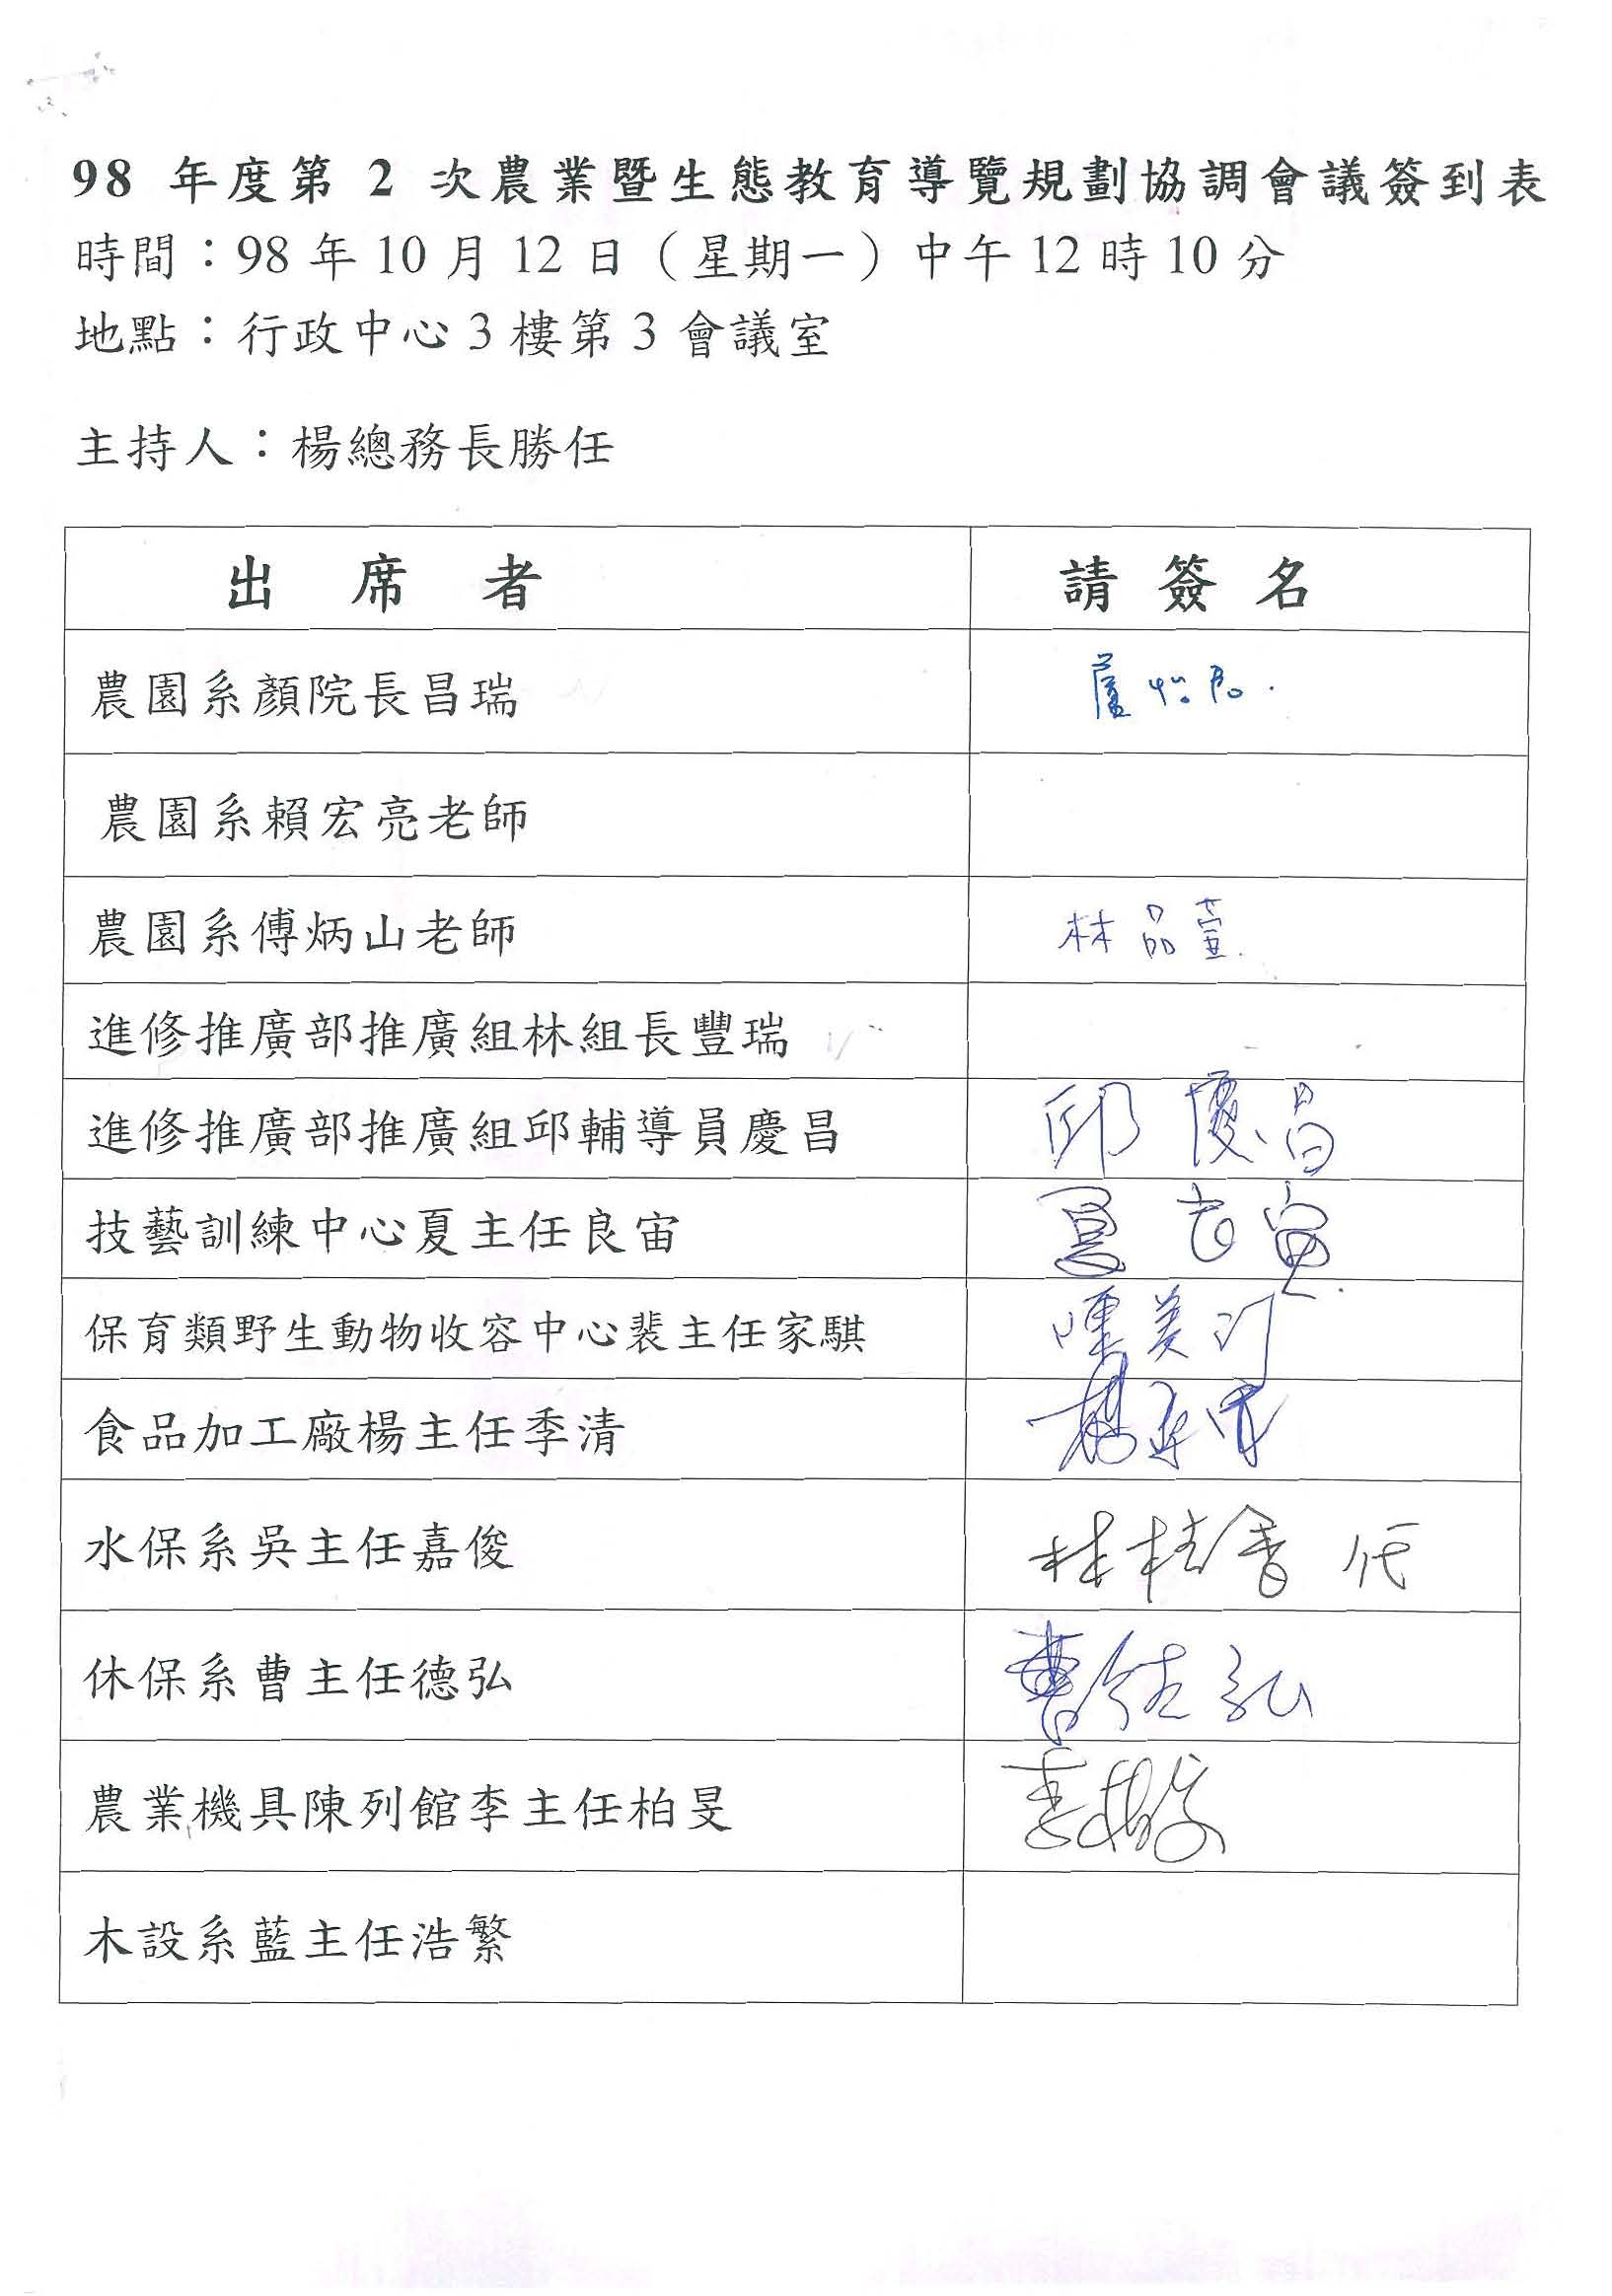 98 年度第 2 次農業暨生態教育導覽規劃協調會議簽到表
時間：98 年 10 月 12 日（星期一）中午 12 時 10 分
地點：行政中心 3 樓第 3 會議室
主持人：楊總務長勝任
出 席 者 請 簽 名
農園系顏院長昌瑞
農園系賴宏亮老師
農園系傅炳山老師 林品萱
進修推廣部推廣組林組長豐瑞
進修推廣部推廣組邱輔導員慶昌 邱慶昌
技藝訓練中心夏主任良宙 夏良宙
保育類野生動物收容中心裴主任家騏 陳美汀
食品加工廠楊主任季清 楊季清
水保系吳主任嘉俊 林桂香 代
休保系曹主任德弘 曹德弘
農業機具陳列館李主任柏旻
木設系藍主任浩繁